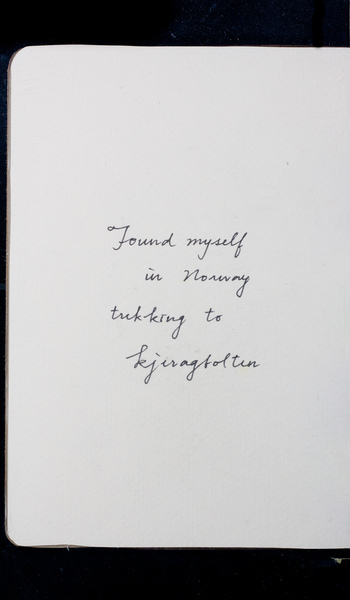 Found myself
in Norway
trekking to
kjeragbolten